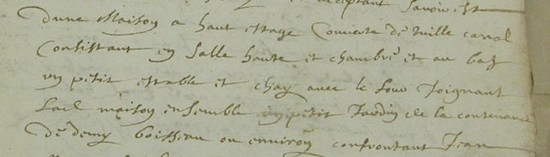 acceptant savoir est
d'une Maison a haut estage Couverte de tuille canal
Consistant en salle haute et chambre et au bas
un petit estable et chay avec le four Joignant
lad maison ensemble un petit Jardin de la contenance
de demy boisseau ou environ confrontant Jean